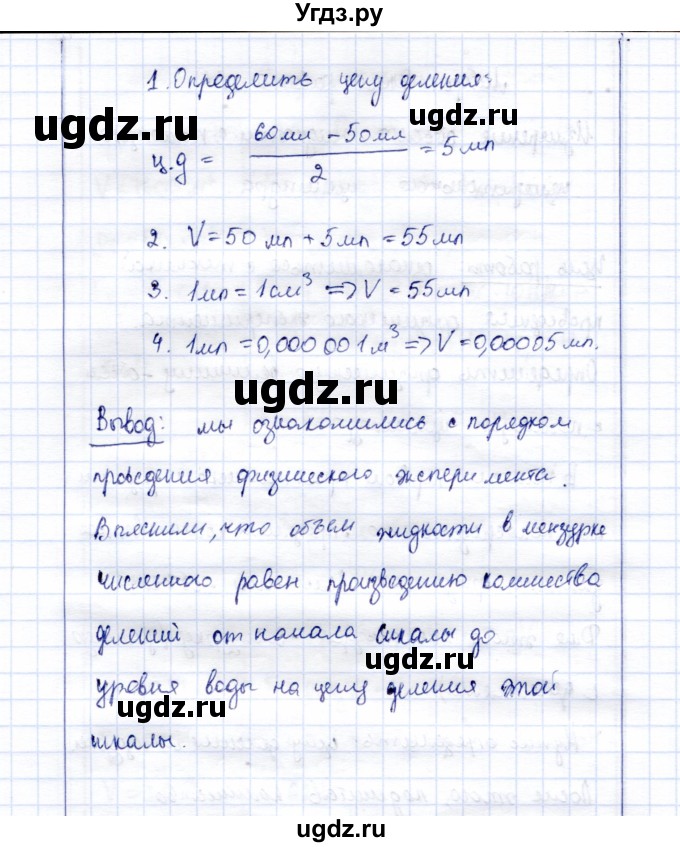 Угдз.ру
1. Определить цену деления:
ugdz.ru
ugdz.ru
ц.д = 60мл - 50мл / 2 = 5мл
2. V = 50 мл + 5мл = 55мл
3. 1мл = 1см³ => V = 55мл
ugdz.ru
4. 1мл = 0,000 001 м³ => V = 0,00005 мл.
ugdz.ru
Вывод: мы ознакомились с порядком
проведения физического эксперимента.
Выяснили, что объем жидкости в мензурке
ugdz.ru
численного равен произведению количества
делений от начала шкалы до
ugdz.ru
уровня воды на цену деления этой
ugdz.ru
шкалы.
ugdz.ru
ugdz.ru